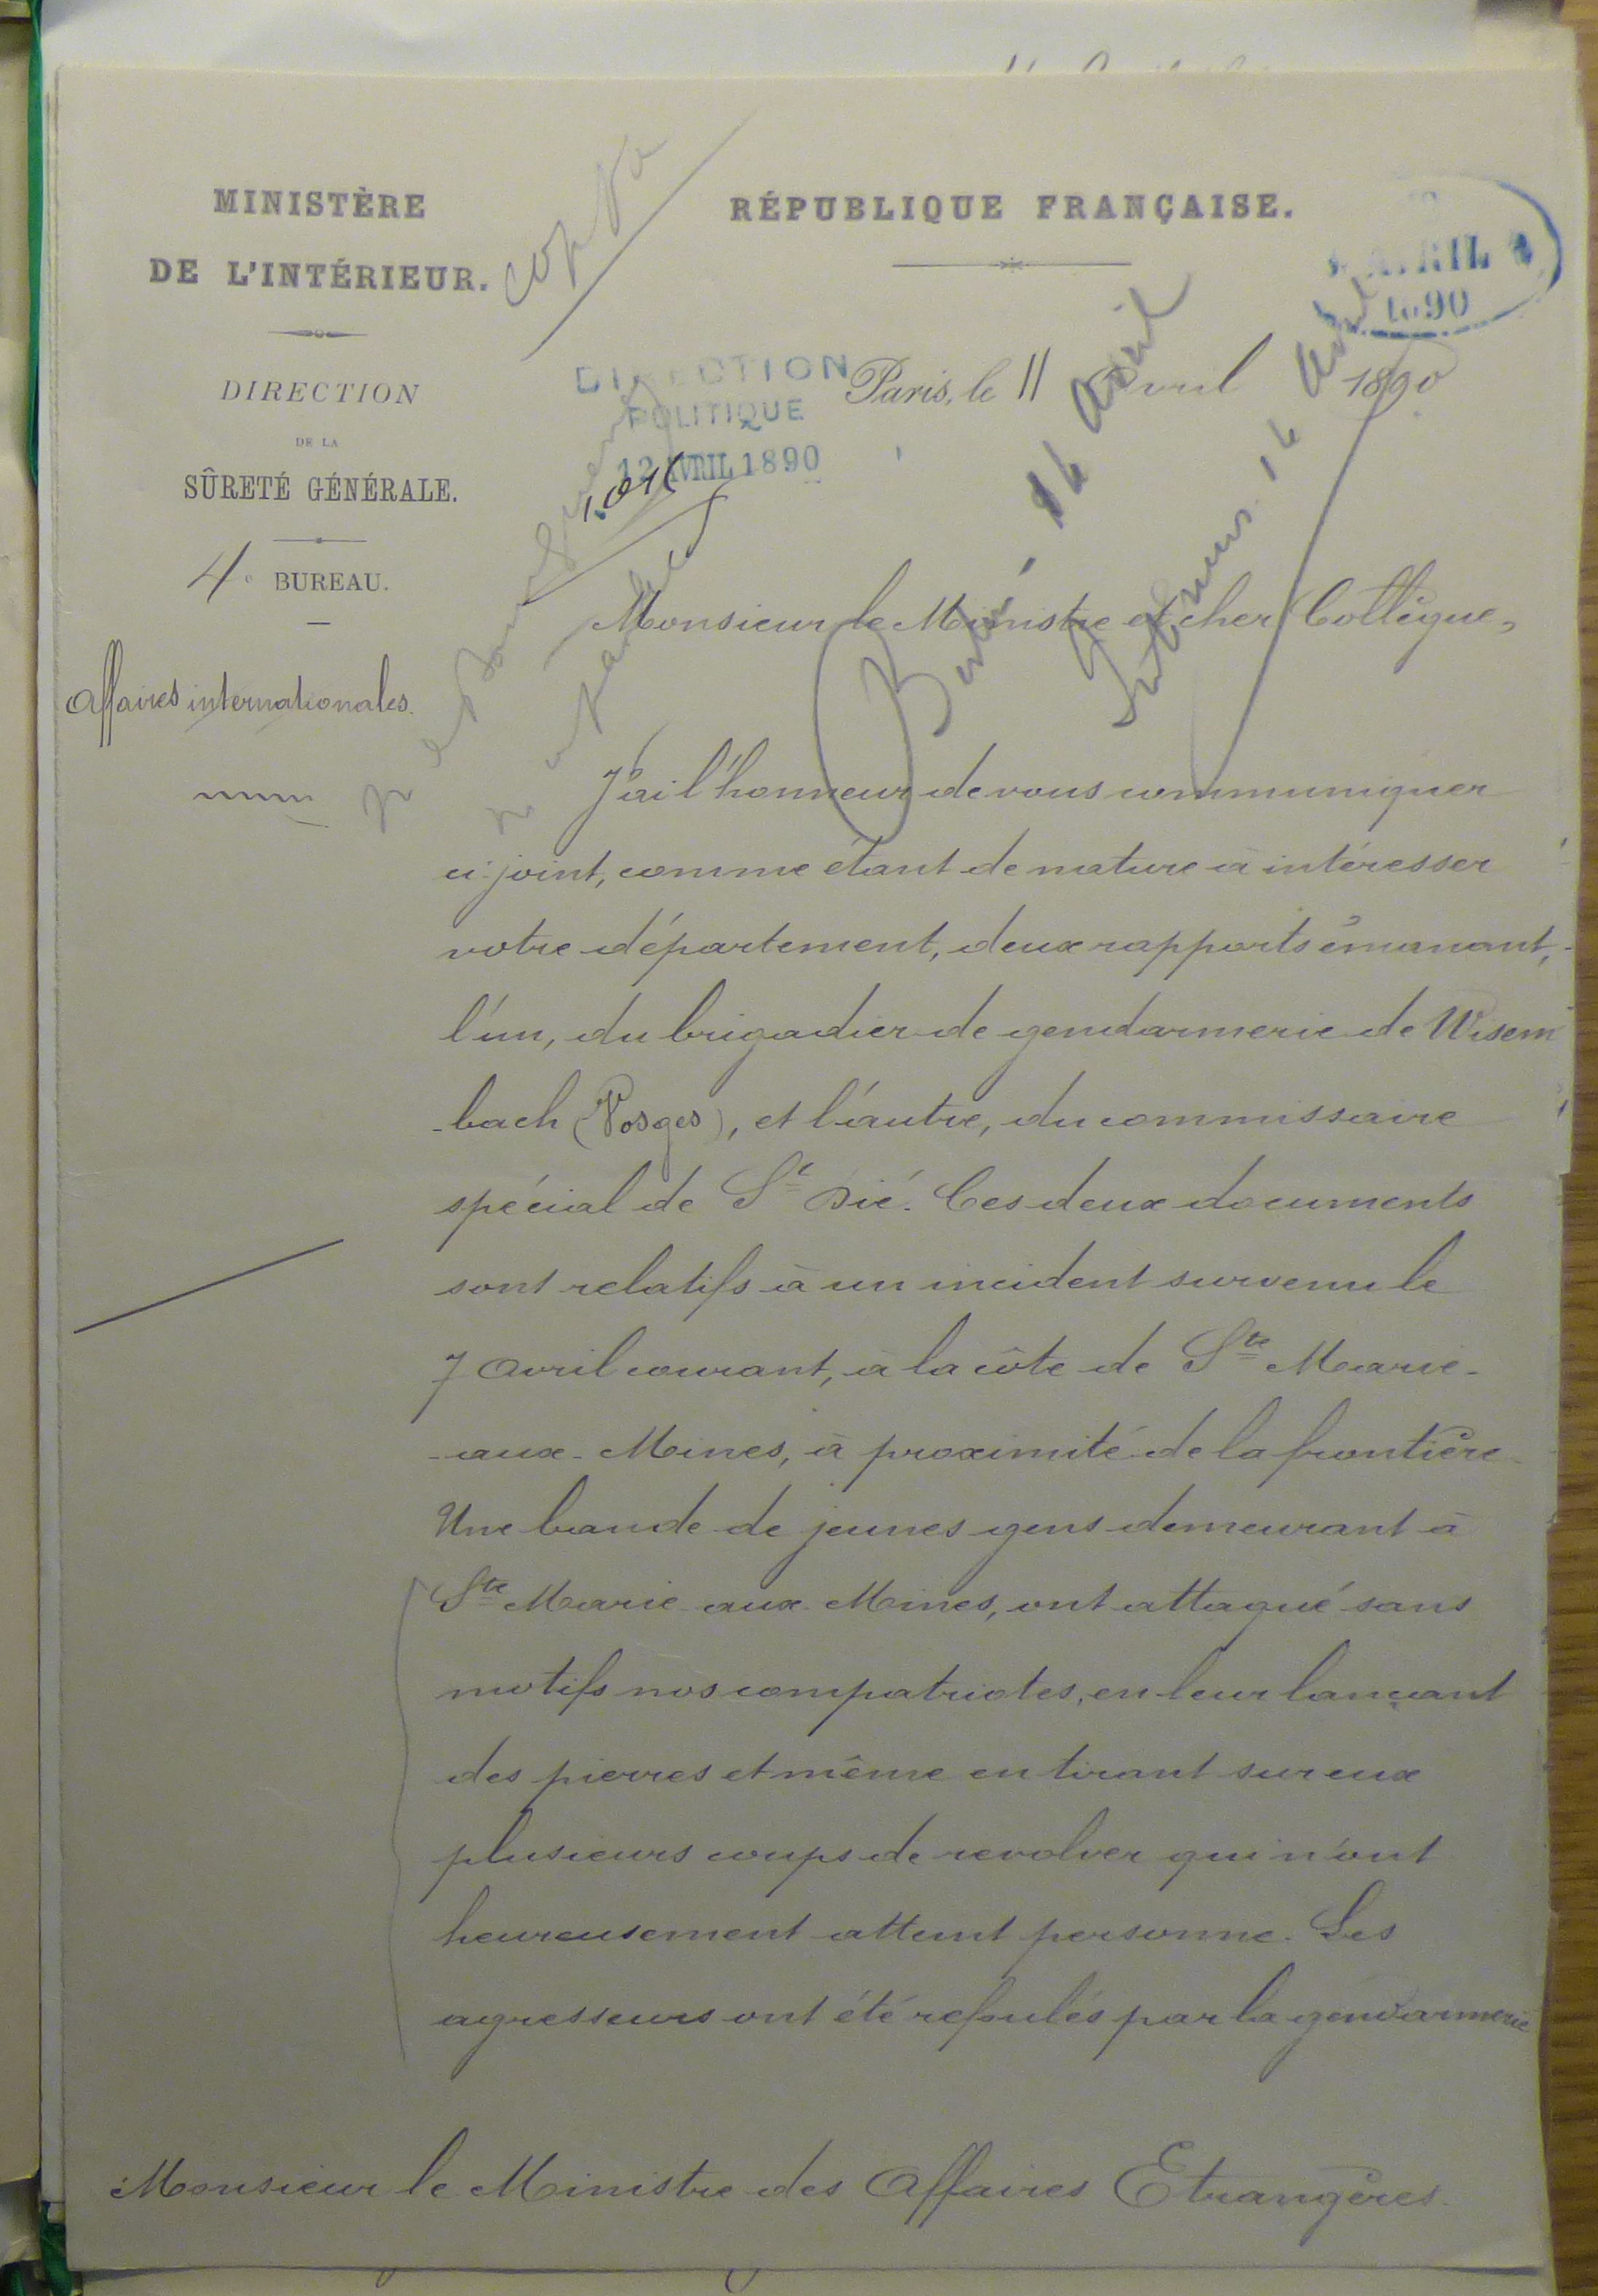 MINISTÈRE
DE L'INTÉRIEUR.
DIRECTION
DE LA
SÛRETÉ GÉNÉRALE.
4e BUREAU.
Affaires internationales.
RÉPUBLIQUE FRANÇAISE.
AVRIL
1890
DIRECTION
POLITIQUE
12 AVRIL 1890
Paris, le 11 Avril 1890
14 avril
Intérieur. 14 avril
Monsieur le Ministre et cher Collègue,
J'ai l'honneur de vous communiquer
ci-joint, comme étant de nature à intéresser
votre département, deux rapports émanant,
l'un, du brigadier de gendarmerie de Wisem
-bach (Vosges), et l'autre, du commissaire
spécial de St Dié. Ces deux documents
sont relatifs à un incident survenu le
7 Avril courant, à la côte de Ste Marie-
-aux-Mines, à proximité de la frontière.
Une bande de jeunes gens demeurant à
Ste Marie-aux-Mines, ont attaqué sans
motifs nos compatriotes, en leur lançant
des pierres et même en tirant sur eux
plusieurs coups de revolver qui n'ont
heureusement atteint personne. Les
agresseurs ont été refoulés par la gendarmerie
Monsieur le Ministre des Affaires Etrangères.